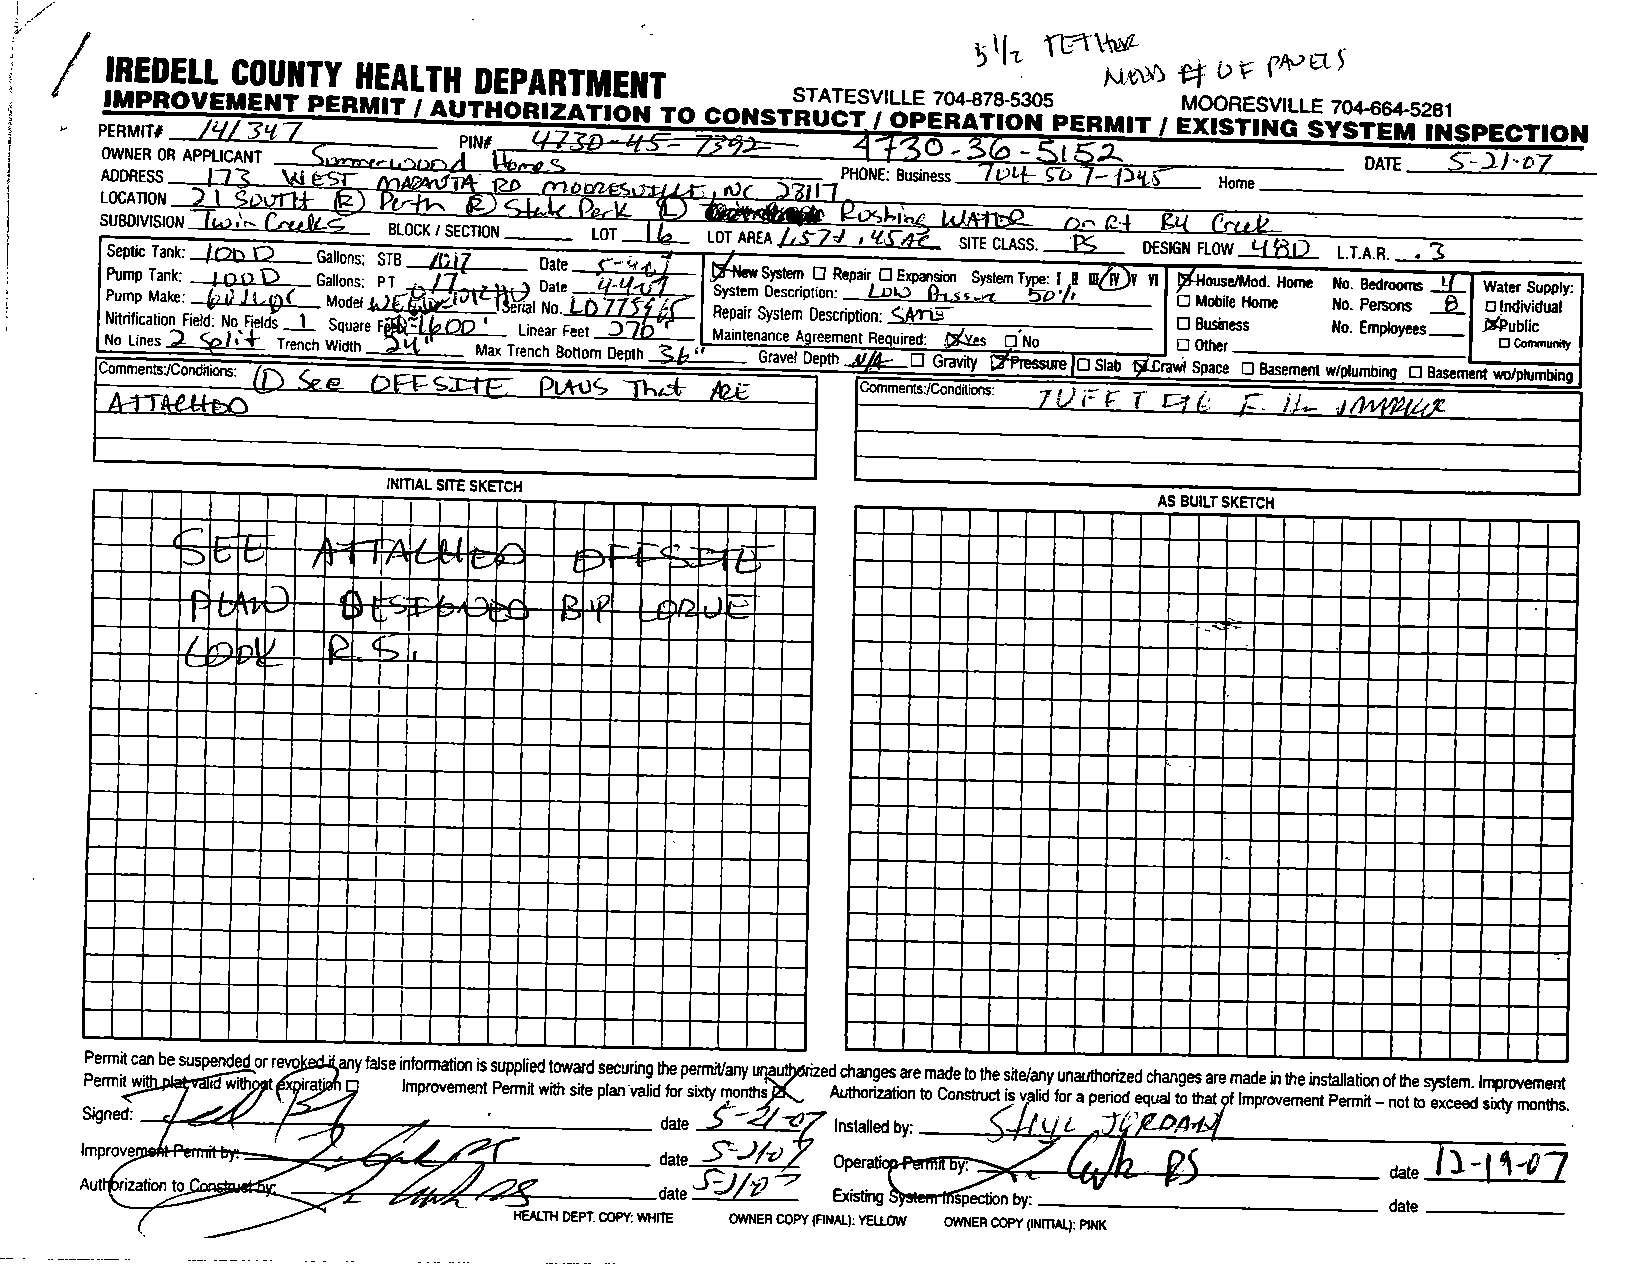 5 1/2 TETHER
NEEDS # OF PANELS
IREDELL COUNTY HEALTH DEPARTMENT
STATESVILLE 704-878-5305 MOORESVILLE 704-664-5281
IMPROVEMENT PERMIT / AUTHORIZATION TO CONSTRUCT / OPERATION PERMIT / EXISTING SYSTEM INSPECTION
PERMIT# 141347 PIN# 4730-45-7392 4730-36-5152
OWNER OR APPLICANT Summerwood Homes DATE 5-21-07
ADDRESS 173 WEST RD MOORESVILLE, NC 28117 PHONE: Business 704 507-1245 Home
LOCATION 21 SOUTH (R) Perth (R) State Park (L) Rushing WATER on Rt By Creek
SUBDIVISION Twin Creeks BLOCK / SECTION LOT 16 LOT AREA SITE CLASS. PS DESIGN FLOW 480 L.T.A.R. .3
Septic Tank: 1000 Gallons; STB Date
Pump Tank: 1000 Gallons; PT Date 4-4-07
Pump Make: Model Serial No.
Nitrification Field: No. Fields 1 Square Feet 1600' Linear Feet 270'
No Lines 2 Split Trench Width 24" Max Trench Bottom Depth 36" Gravel Depth N/A Gravity Pressure
New System Repair Expansion System Type: I II III IV V VI
System Description: Low Pressure 50%
Repair System Description: SAME
Maintenance Agreement Required: Yes No
House/Mod. Home No. Bedrooms 4
Mobile Home No. Persons 8
Business No. Employees
Other
Slab Crawl Space Basement w/plumbing Basement wo/plumbing
Water Supply:
Individual
Public
Community
Comments:/Conditions: (1) See OFFSITE PLANS That ARE
ATTACHED
Comments:/Conditions:
INITIAL SITE SKETCH
SEE ATTACHED OFFSITE
PLAN DESIGNED BY
COOK R.S.
AS BUILT SKETCH
Permit can be suspended or revoked if any false information is supplied toward securing the permit/any unauthorized changes are made to the site/any unauthorized changes are made in the installation of the system. Improvement
Permit with plat valid without expiration Improvement Permit with site plan valid for sixty months Authorization to Construct is valid for a period equal to that of Improvement Permit – not to exceed sixty months.
Signed: date 5-21-07 Installed by: JORDAN
Improvement Permit by: date 5-21-07 Operation Permit by: RS date 12-19-07
Authorization to Construct by: RS date 5-21-07 Existing System Inspection by: date
HEALTH DEPT. COPY: WHITE OWNER COPY (FINAL): YELLOW OWNER COPY (INITIAL): PINK